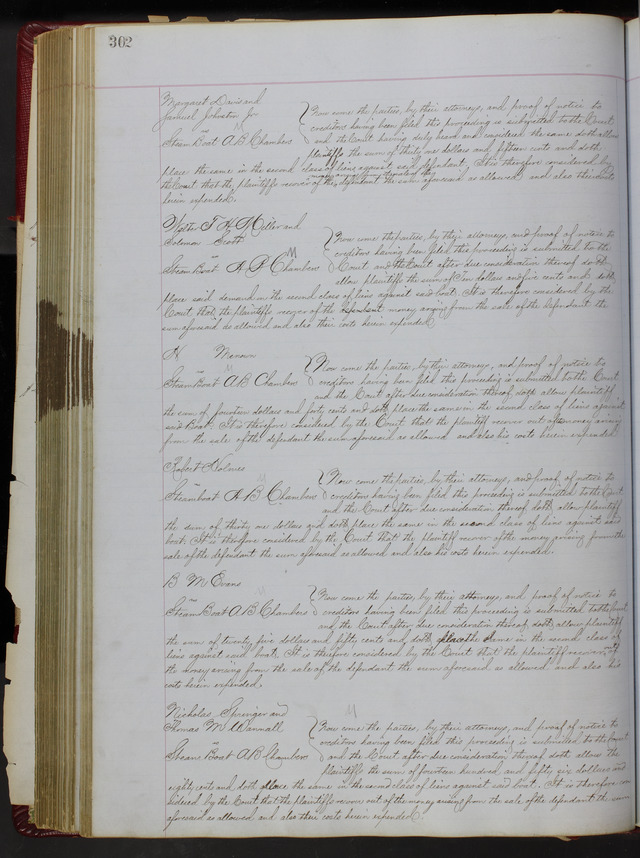 302
Margaret Davis and
Samuel Johnston Jr
vs
Steam Boat A B Chambers
Now come the parties, by their attorneys, and proof of notice to
creditors having been filed this proceeding is submitted to the Court
and the Court having duly heard and considered the same doth allow
plaintiffs the sum of thirty one dollars and fifteen cents and doth
place the same in the second class of liens against said defendant. It is therefore considered by
the Court that the plaintiffs recover of the defendant the sum aforesaid as allowed and also their costs
herein expended.
T H Miller and
Solomon Scott
vs
Steam Boat A B Chambers
Now come the parties, by their attorneys, and proof of notice to
creditors having been filed, this proceeding is submitted to the
Court and the Court after due consideration thereof doth
allow plaintiffs the sum of Ten dollars and five cents and doth
place said demand in the second class of liens against said boat. It is therefore considered by the
Court that the plaintiffs recover of the money arising from the sale of the defendant the
sum aforesaid as allowed and also their costs herein expended.
H
vs
Steam Boat A B Chambers
Now come the parties, by their attorneys, and proof of notice to
creditors having been filed this proceeding is submitted to the Court
and the Court after due consideration thereof doth allow plaintiff
the sum of fourteen dollars and forty cents and doth place the same in the second class of liens against
said Boat. It is therefore considered by the Court that the plaintiff recover out of the money arising
from the sale of the defendant the sum aforesaid as allowed and also his costs herein expended.
Robert Holmes
vs
Steamboat A B Chambers
Now come the parties, by their attorneys, and proof of notice to
creditors having been filed this proceeding is submitted to the Court
and the Court after due consideration thereof doth allow plaintiff
the sum of thirty one dollars and doth place the same in the second class of liens against said
boat. It is therefore considered by the Court that the plaintiff recover of the money arising from the
sale of the defendant the sum aforesaid as allowed and also his costs herein expended.
B M Evans
vs
Steam Boat A B Chambers
Now come the parties, by their attorneys, and proof of notice to
creditors having been filed, this proceeding is submitted to the Court
and the Court after due consideration thereof doth allow plaintiff
the sum of twenty five dollars and fifty cents and doth place the same in the second class of
liens against said boat. It is therefore considered by the Court that the plaintiff recover of
the money arising from the sale of the defendant the sum aforesaid as allowed and also his
costs herein expended.
Nicholas Springer and
Thomas M
vs
Steam Boat A B Chambers
Now come the parties, by their attorneys, and proof of notice to
creditors having been filed this proceeding is submitted to the Court
and the Court after due consideration thereof doth allow the
plaintiffs the sum of fourteen hundred and fifty six dollars and
eighty cents and doth place the same in the second class of liens against said boat. It is therefore con
sidered by the Court that the plaintiffs recover out of the money arising from the sale of the defendant the sum
aforesaid as allowed and also their costs herein expended.